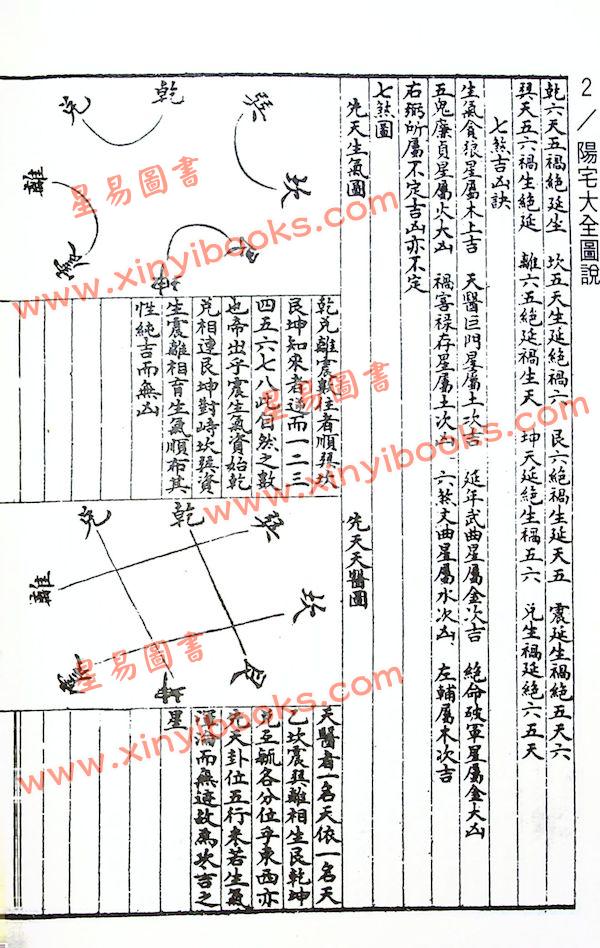 2／陽宅大全圖說
乾六天五禍絕延生　坎五天生延絕禍六　艮六絕禍生延天五　震延生禍絕五天六
巽天五六禍生絕延　離六五絕延禍生天　坤天延絕生禍五六　兌生禍延絕六五天
七煞吉凶訣
生氣貪狼星屬木上吉　天醫巨門星屬土次吉　延年武曲星屬金次吉　絕命破軍星屬金大凶
五鬼廉貞星屬火大凶　禍害祿存星屬土次凶　六煞文曲星屬水次凶　左輔屬木次吉
右弼所屬不定吉凶亦不定
七煞圖
先天生氣圖
巽
乾
兌
坎
離
艮
坤
震
乾兌離震數往者順巽坎
艮坤知來者逆而一二三
四五六七八此自然之數
也帝出乎震生氣資始乾
兌相連艮坤對峙坎巽資
生震離相育生氣順布其
性純吉而無凶
先天天醫圖
巽
乾
兌
坎
離
艮
坤
震
天醫者一名天依一名天
乙坎震巽離相生艮乾坤
兌互毓各分位乎東西亦
先天卦位五行來若生氣
渾淪而無迹故為次吉之
星
星易圖書
www.xinyibooks.com
星易圖書
www.xinyibooks.com
星易圖書
www.xinyibooks.com